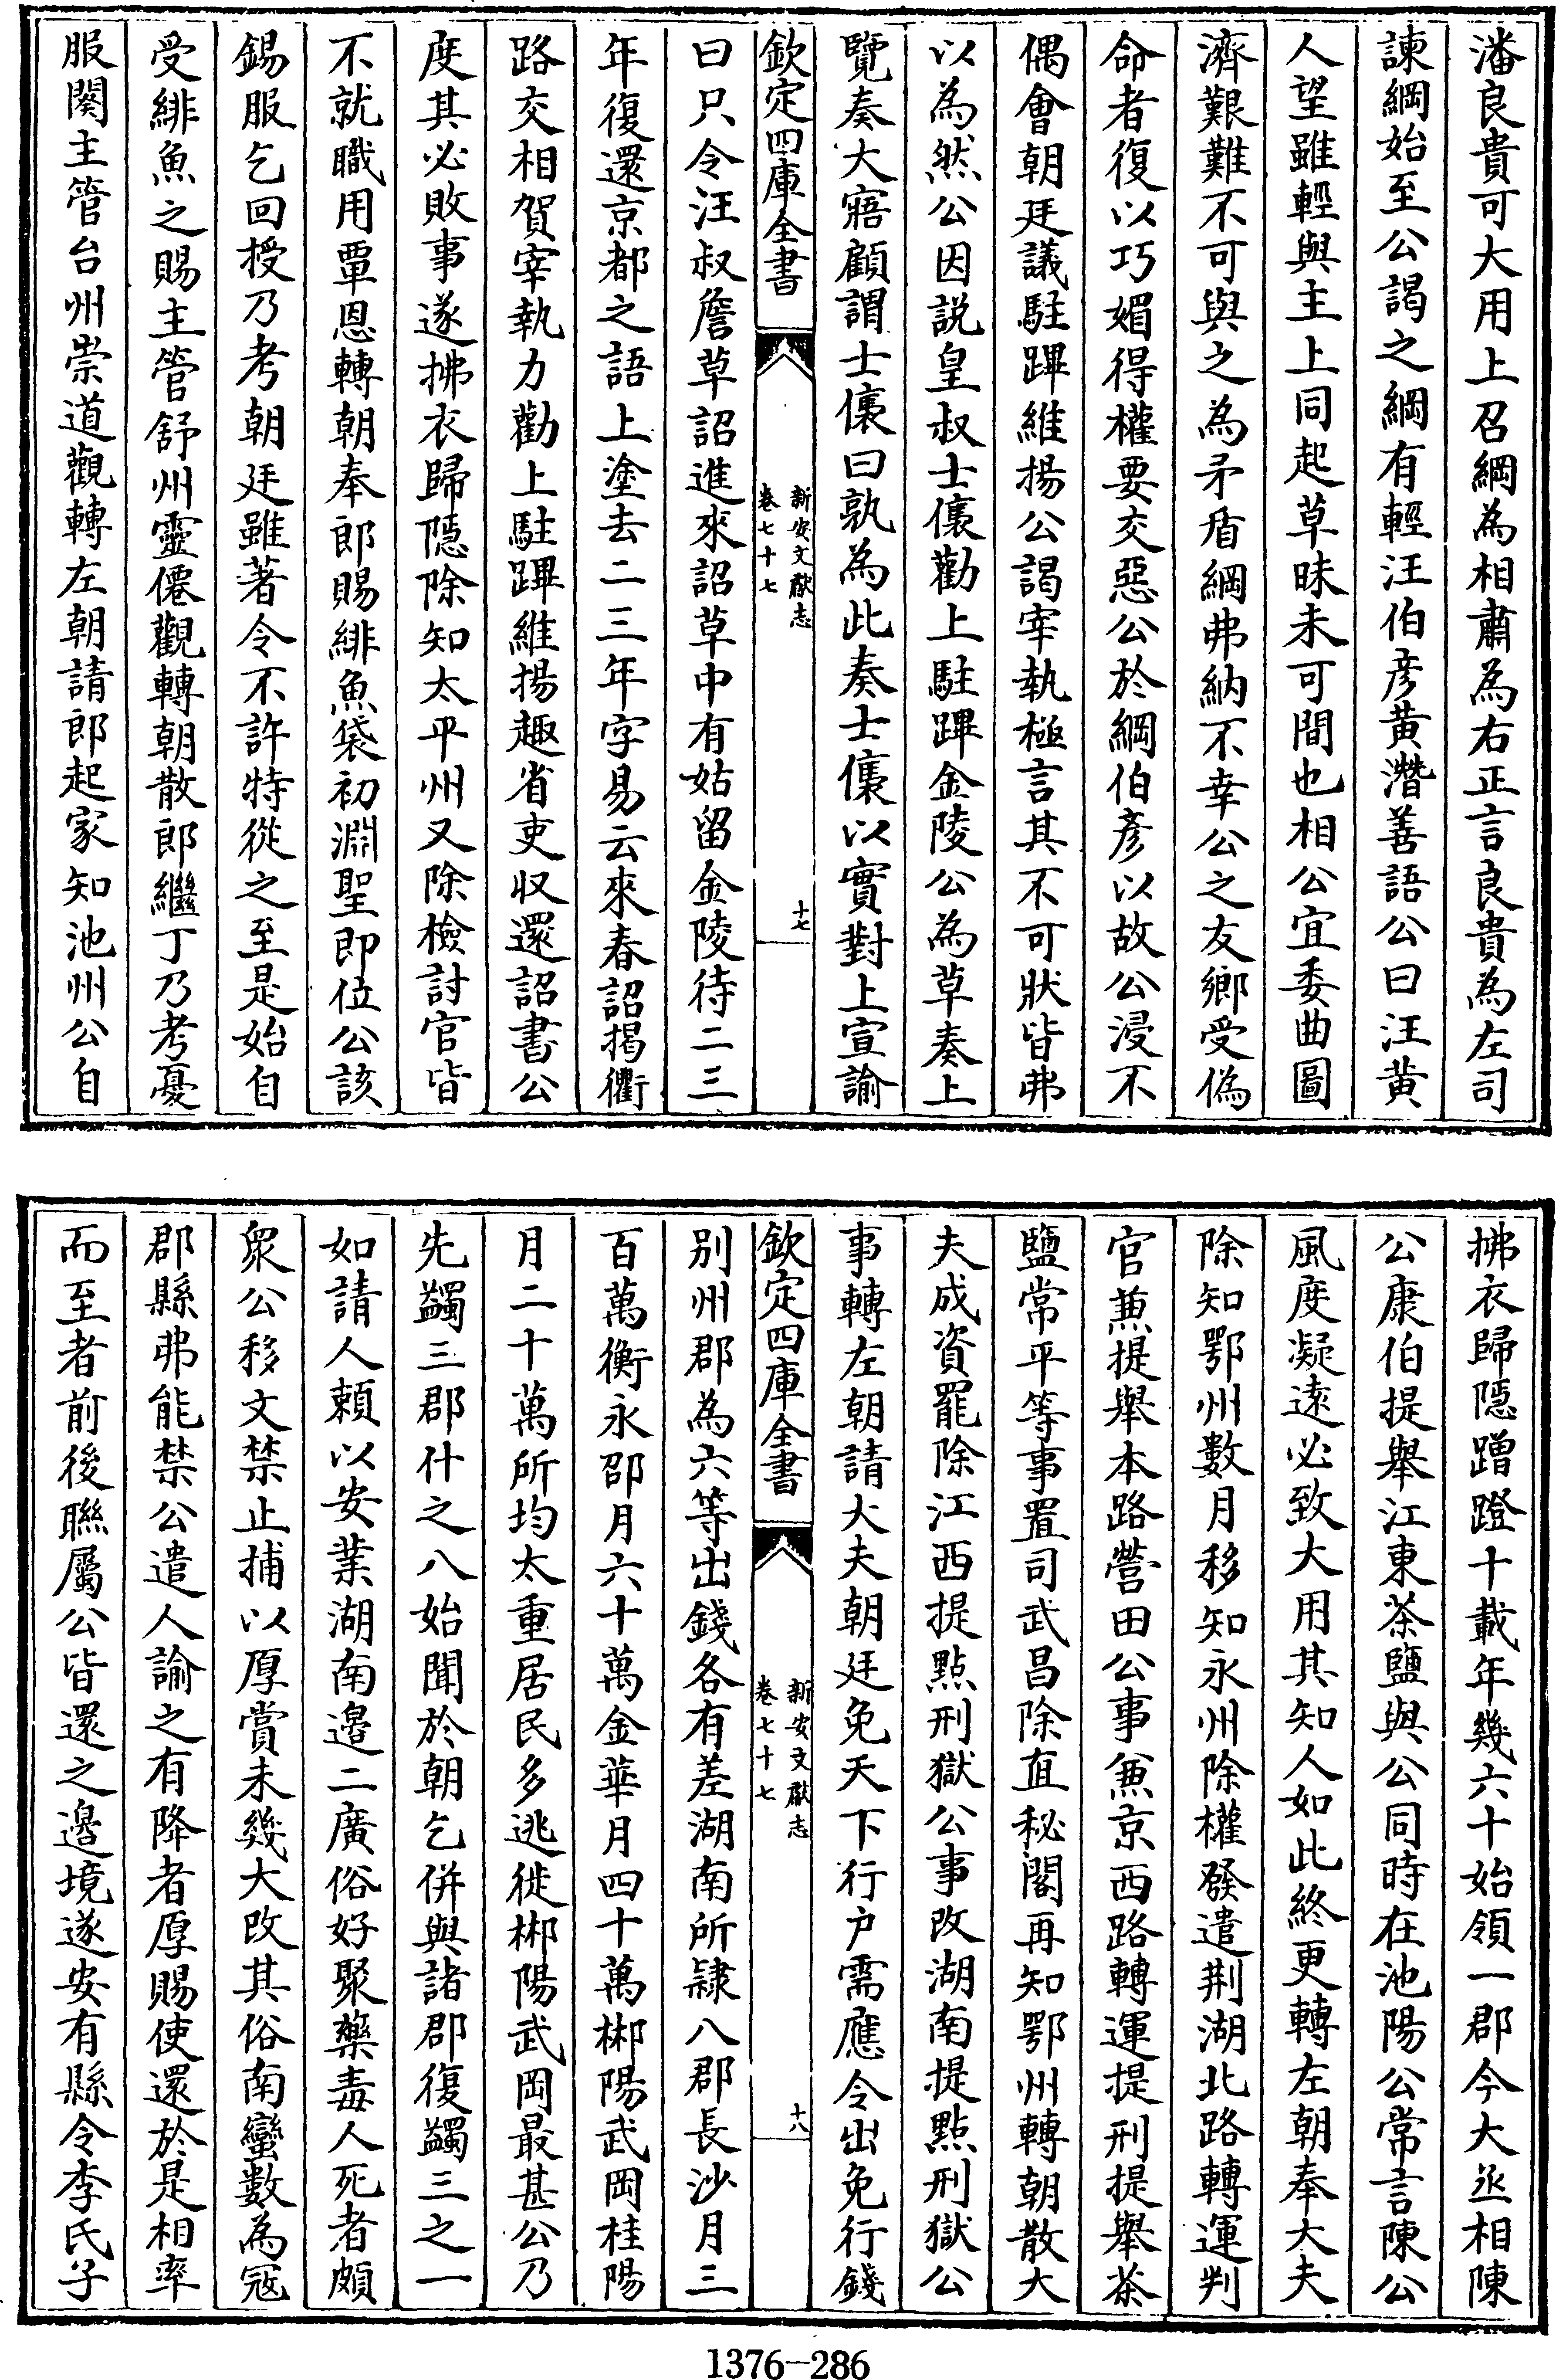 潘良貴可大用上召綱為相肅為右正言良貴為左司
諫綱始至公謁之綱有輕汪伯彦黃潛善語公曰汪黃
人望雖輕與主上同起草昧未可間也相公宜委曲圖
濟艱難不可與之為矛盾綱弗納不幸公之友鄉受偽
命者復以巧媚得權要交惡公於綱伯彦以故公浸不
偶會朝廷議駐蹕維揚公謁宰執極言其不可狀皆弗
以為然公因説皇叔士㒟勸上駐蹕金陵公為草奏上
覽奏大寤顧謂士㒟曰孰為此奏士㒟以實對上宣諭
欽定四庫全書
新安文獻志
卷七十七
十七
曰只令汪叔詹草詔進來詔草中有姑留金陵待二三
年復還京都之語上塗去二三年字易云來春詔揭衢
路交相賀宰執力勸上駐蹕維揚趣省吏収還詔書公
度其必敗事遂拂衣歸隱除知太平州又除檢討官皆
不就職用覃恩轉朝奉郎賜緋魚袋初淵聖即位公該
錫服乞回授乃考朝廷雖著令不許特從之至是始自
受緋魚之賜主管舒州靈僊觀轉朝散郎繼丁乃考憂
服闋主管台州崇道觀轉左朝請郎起家知池州公自
拂衣歸隱蹭蹬十載年幾六十始領一郡今大丞相陳
公康伯提舉江東茶鹽與公同時在池陽公常言陳公
風度凝逺必致大用其知人如此終更轉左朝奉大夫
除知鄂州數月移知永州除權發遣荆湖北路轉運判
官兼提舉本路營田公事兼京西路轉運提刑提舉茶
鹽常平等事置司武昌除直秘閣再知鄂州轉朝散大
夫成資罷除江西提點刑獄公事改湖南提點刑獄公
事轉左朝請大夫朝廷免天下行户需應令出免行錢
欽定四庫全書
新安文獻志
卷七十七
十八
别州郡為六等出錢各有差湖南所隷八郡長沙月三
百萬衡永邵月六十萬金華月四十萬郴陽武岡桂陽
月二十萬所均太重居民多逃徙郴陽武岡最甚公乃
先蠲三郡什之八始聞於朝乞併與諸郡復蠲三之一
如請人頼以安業湖南邉二廣俗好聚藥毒人死者頗
衆公移文禁止捕以厚賞未幾大改其俗南蠻數為冦
郡縣弗能禁公遣人諭之有降者厚賜使還於是相率
而至者前後聯屬公皆還之邉境遂安有縣令李氏子
1376-286